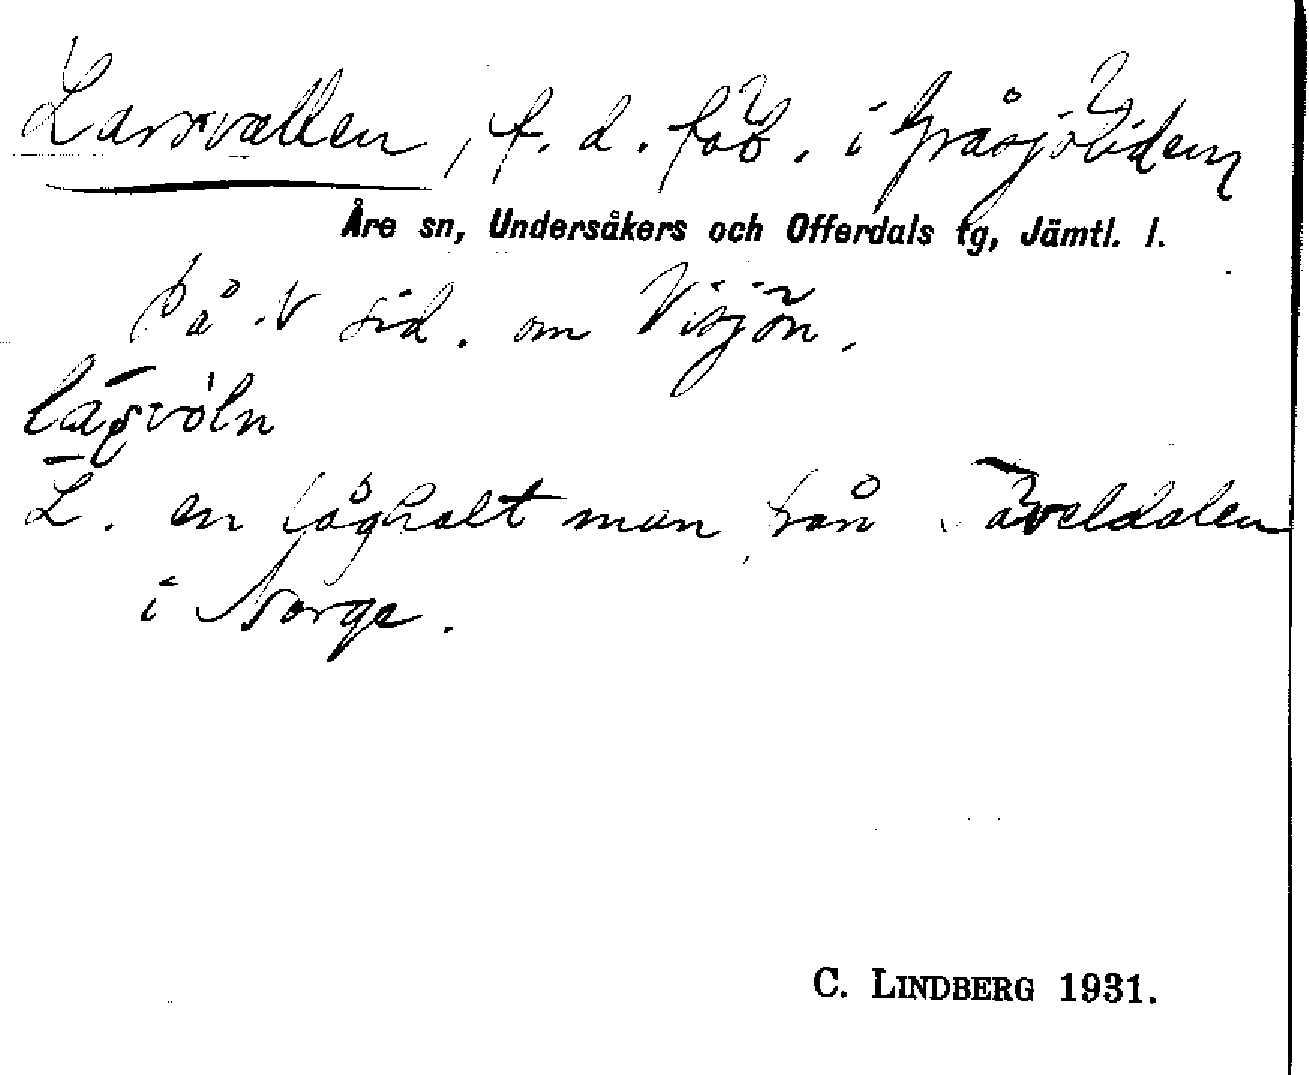 Larsvallen, f. d. fäb. i Gråsjöliden
Åre sn, Undersåkers och Offerdals tg, Jämtl. l.
på V sid. om Visjön.
L. en låghalt man från
i Norge.
C. LINDBERG 1931.